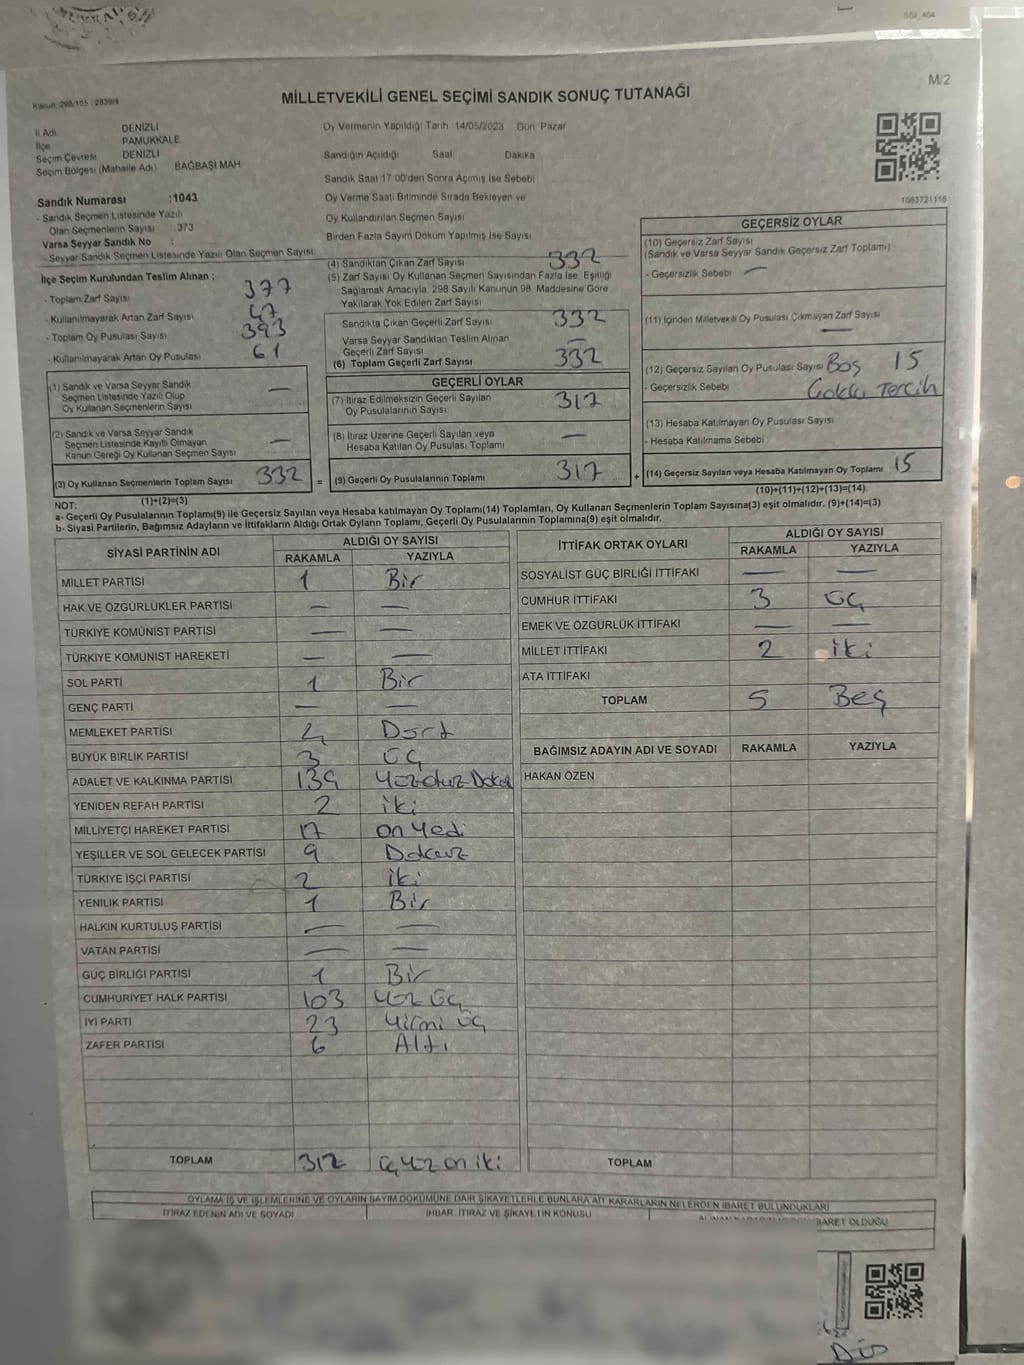 SGI_404
M/2
Kanun, 298/105 - 2839/4
MİLLETVEKİLİ GENEL SEÇİMİ SANDIK SONUÇ TUTANAĞI
İl Adı DENİZLİ
İlçe PAMUKKALE
Seçim Çevresi DENİZLİ
Seçim Bölgesi (Mahalle Adı) BAĞBAŞI MAH
Sandık Numarası :1043
- Sandık Seçmen Listesinde Yazılı
Olan Seçmenlerin Sayısı 373
Varsa Seyyar Sandık No :
- Seyyar Sandık Seçmen Listesinde Yazılı Olan Seçmen Sayısı
Oy Vermenin Yapıldığı Tarih 14/05/2023 Gün Pazar
Sandığın Açıldığı Saat Dakika
Sandık Saat 17.00'den Sonra Açımış İse Sebebi
Oy Verme Saati Bitiminde Sırada Bekleyen ve
Oy Kullandırılan Seçmen Sayısı
Birden Fazla Sayım Döküm Yapılmış İse Sayısı
1083721116
İlçe Seçim Kurulundan Teslim Alınan :
- Toplam Zarf Sayısı 377
- Kullanılmayarak Artan Zarf Sayısı 47
- Toplam Oy Pusulası Sayısı 393
- Kullanılmayarak Artan Oy Pusulası 61
(1) Sandık ve Varsa Seyyar Sandık
Seçmen Listesinde Yazılı Olup
Oy Kullanan Seçmenlerin Sayısı —
(2) Sandık ve Varsa Seyyar Sandık
Seçmen Listesinde Kayıtlı Olmayan
Kanun Gereği Oy Kullanan Seçmen Sayısı —
(3) Oy Kullanan Seçmenlerin Toplam Sayısı 332 =
(1)+(2)=(3)
(4) Sandıktan Çıkan Zarf Sayısı 332
(5) Zarf Sayısı Oy Kullanan Seçmen Sayısından Fazla İse, Eşitliği
Sağlamak Amacıyla, 298 Sayılı Kanunun 98. Maddesine Göre
Yakılarak Yok Edilen Zarf Sayısı
Sandıkta Çıkan Geçerli Zarf Sayısı 332
Varsa Seyyar Sandıktan Teslim Alınan
Geçerli Zarf Sayısı —
(6) Toplam Geçerli Zarf Sayısı 332
GEÇERLİ OYLAR
(7) İtiraz Edilmeksizin Geçerli Sayılan
Oy Pusulalarının Sayısı 317
(8) İtiraz Üzerine Geçerli Sayılan veya
Hesaba Katılan Oy Pusulası Toplamı —
(9) Geçerli Oy Pusulalarının Toplamı 317 +
GEÇERSİZ OYLAR
(10) Geçersiz Zarf Sayısı
(Sandık ve Varsa Seyyar Sandık Geçersiz Zarf Toplamı)
- Geçersizlik Sebebi —
(11) İçinden Milletvekili Oy Pusulası Çıkmayan Zarf Sayısı —
(12) Geçersiz Sayılan Oy Pusulası Sayısı Boş 15
- Geçersizlik Sebebi Çoklu Tercih
(13) Hesaba Katılmayan Oy Pusulası Sayısı
- Hesaba Katılmama Sebebi
(14) Geçersiz Sayılan veya Hesaba Katılmayan Oy Toplamı 15
(10)+(11)+(12)+(13)=(14)
NOT:
a- Geçerli Oy Pusulasının Toplamı(9) ile Geçersiz Sayılan veya Hesaba katılmayan Oy Toplamı(14) Toplamları, Oy Kullanan Seçmenlerin Toplam Sayısına(3) eşit olmalıdır. (9)+(14)=(3)
b- Siyasi Partilerin, Bağımsız Adayların ve İttifakların Aldığı Ortak Oyların Toplamı, Geçerli Oy Pusulalarının Toplamına(9) eşit olmalıdır.
SİYASİ PARTİNİN ADI ALDIĞI OY SAYISI
RAKAMLA YAZIYLA
MİLLET PARTİSİ 1 Bir
HAK VE ÖZGÜRLÜKLER PARTİSİ — —
TÜRKİYE KOMÜNİST PARTİSİ — —
TÜRKİYE KOMÜNİST HAREKETİ — —
SOL PARTİ 1 Bir
GENÇ PARTİ — —
MEMLEKET PARTİSİ 4 Dört
BÜYÜK BİRLİK PARTİSİ 3 Üç
ADALET VE KALKINMA PARTİSİ 139 Yüzotuz Dokuz
YENİDEN REFAH PARTİSİ 2 iki
MİLLİYETÇİ HAREKET PARTİSİ 17 on Yedi
YEŞİLLER VE SOL GELECEK PARTİSİ 9 Dokuz
TÜRKİYE İŞÇİ PARTİSİ 2 iki
YENİLİK PARTİSİ 1 Bir
HALKIN KURTULUŞ PARTİSİ — —
VATAN PARTİSİ — —
GÜÇ BİRLİĞİ PARTİSİ 1 Bir
CUMHURİYET HALK PARTİSİ 103 Yüz Üç
İYİ PARTİ 23 Yirmi üç
ZAFER PARTİSİ 6 Altı
TOPLAM 312 üçyüz on iki
İTTİFAK ORTAK OYLARI ALDIĞI OY SAYISI
RAKAMLA YAZIYLA
SOSYALİST GÜÇ BİRLİĞİ İTTİFAKI — —
CUMHUR İTTİFAKI 3 ÜÇ
EMEK VE ÖZGÜRLÜK İTTİFAKI — —
MİLLET İTTİFAKI 2 iki
ATA İTTİFAKI
TOPLAM 5 Beş
BAĞIMSIZ ADAYIN ADI VE SOYADI RAKAMLA YAZIYLA
HAKAN ÖZEN
TOPLAM
OYLAMA İŞ VE İŞLEMLERİNE VE OYLARIN SAYIM DÖKÜMÜNE DAİR ŞİKAYETLERLE BUNLARA AİT KARARLARIN NELERDEN İBARET BULUNDUKLARI
İTİRAZ EDENİN ADI VE SOYADI İHBAR, İTİRAZ VE ŞİKAYETİN KONUSU İBARET OLDUĞU